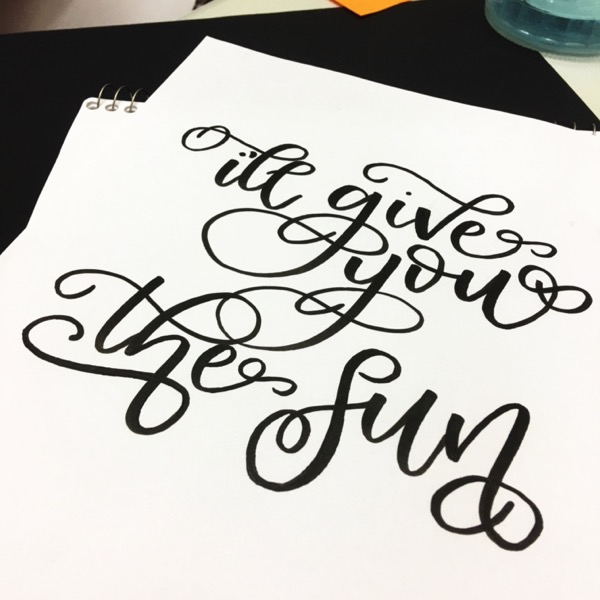 i'll give
you
the sun